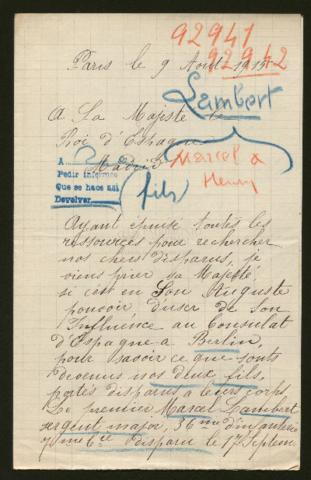 92941
92942
Paris le 9 Août 1915
Lambert
A Sa Majesté le
Roi d'Espagne
Madrid
Marcel &
Henry
fils
A
Pedir informes
Que se hace así
Devolver
Ayant épuisé toutes les
ressources pour rechercher
nos chers disparus, je
viens prier sa Majesté
si c'est en Son Auguste
pouvoir d'user de Son
Influence au Consulat
d'Espagne a Berlin,
pour savoir ce que sont
devenus nos deux fils
portés disparus a leurs corps
Le premier Marcel Lambert
sergent major, 36me d'infanterie
7me Cie disparu le 17 Septem